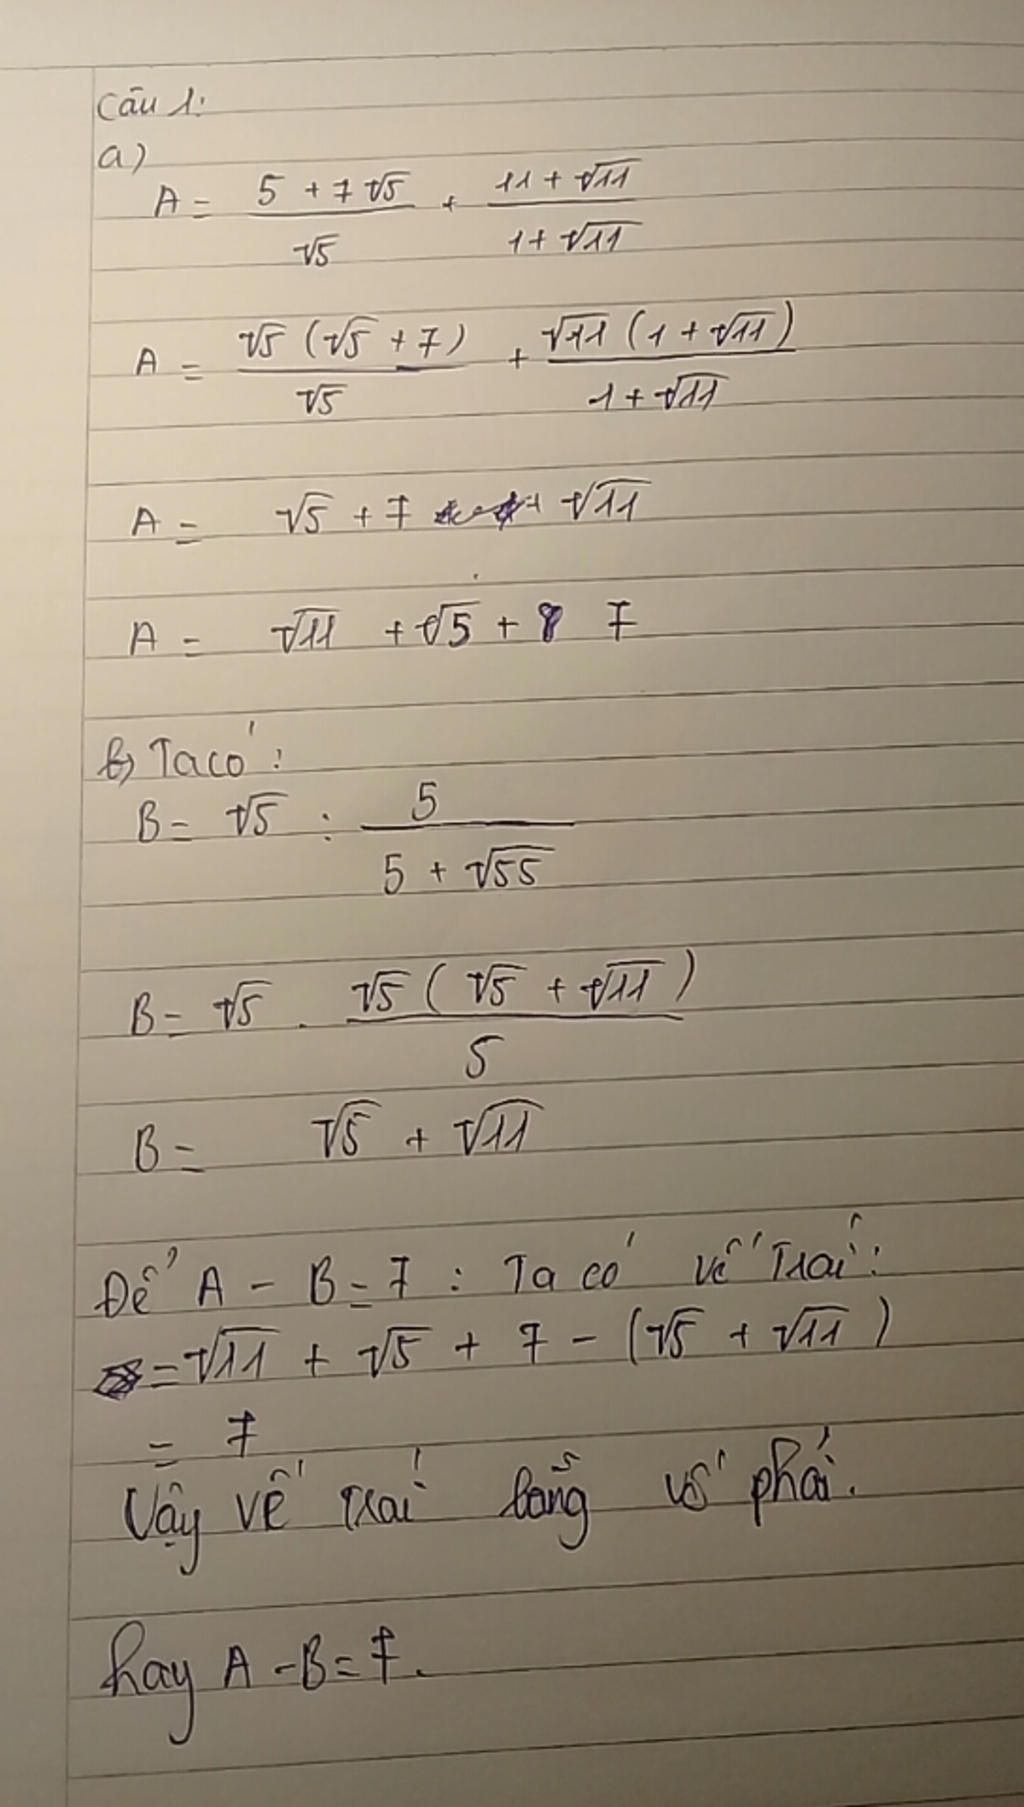 Câu 1:
a)
A = (5 + 7√5)/√5 + (11 + √11)/(1 + √11)
A = (√5 (√5 + 7))/√5 + (√11 (1 + √11))/(1 + √11)
A = √5 + 7 + √11
A = √11 + √5 + 7
b) Ta có:
B = √5 : 5/(5 + √55)
B = √5 . (√5 (√5 + √11))/5
B = √5 + √11
Để A - B = 7 : Ta có vế Trái:
= √11 + √5 + 7 - (√5 + √11)
= 7
Vậy vế trái bằng vế phải.
hay A - B = 7.